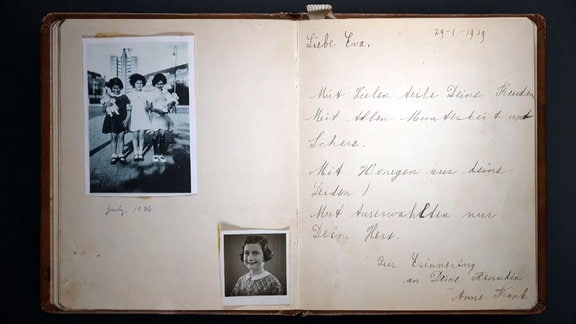 July, 1936
29-1-1939
Liebe Eva,
Mit Vielen teile Deine Freuden
Mit Allen Munterkeit und
Scherz.
Mit Wenigen nur deine
Leiden!
Mit Auserwahlten nur
Dein Herz.
Zur Erinnering
an Deine Freundin
Anne Frank